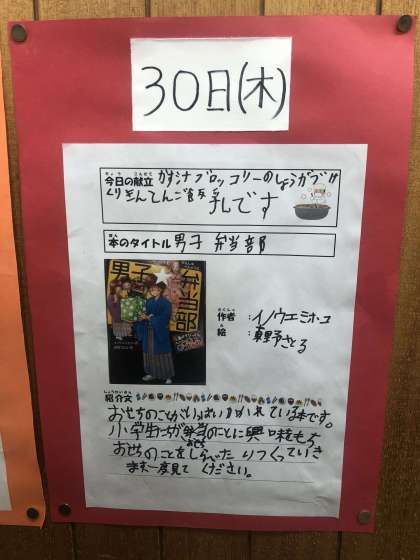 30日(木)
今日の献立 かす汁 ブロッコリーのしょうがづけ
くりきんてんご飯 乳です
本のタイトル 男子 弁当部
男子
弁当部
作者 : イノウエミホコ
絵 : 東野さとる
紹介文
おせちのことがいっぱいかかれている本です。
小学生たちが弁当のことに興味をもち
おせち
おせちのことをしらべたりつくっていき
ます。一度見てください。